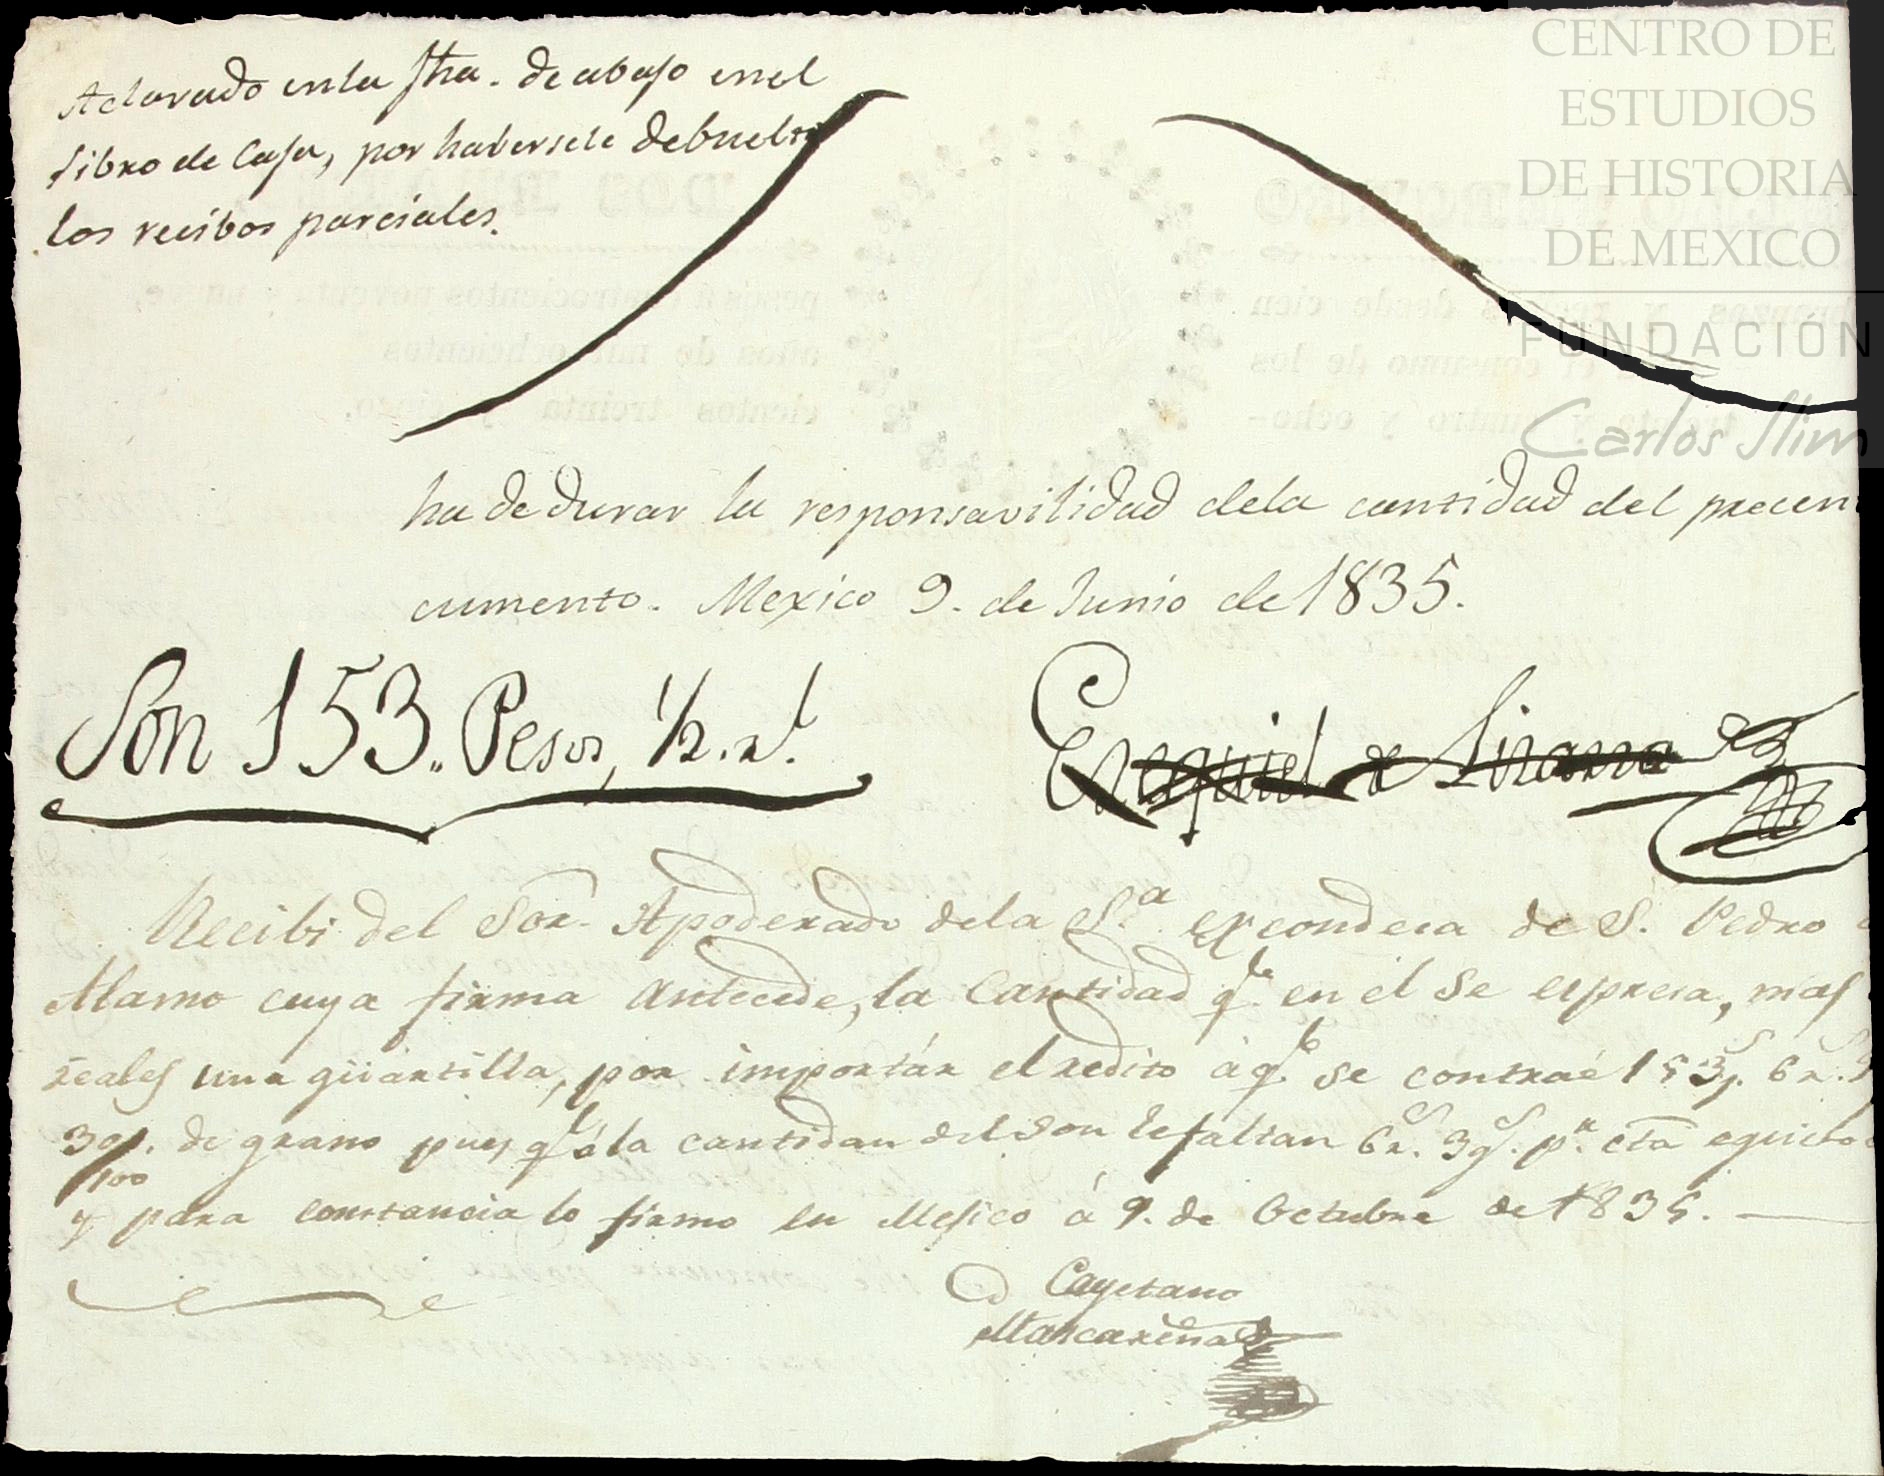 Aclarado en la fha. de abajo en el
Libro de Caja, por haversele debuelto
los recibos parciales.
CENTRO DE
ESTUDIOS
DE HISTORIA
DE MEXICO
FUNDACIÓN
Carlos Slim
ha de durar la responsavilidad dela cantidad del precen
cumento. Mexico 9. de Junio de 1835.
Son 153.. Pesos, 1/2. rl.
Ezequiel de Lizarza
Recibi del Sor. Apoderado dela S.a excondesa de S. Pedro
Alamo cuya firma Antecede, la Cantidad q.e en el se espresa, mas
reales una quartilla, por importár el redito á q.e se contraé 153p.s 6r.s
39/100 de grano pues q.e á la cantidad del son le faltan 6r.s 3g.s p.a cta
y para constancia lo firmo en Mejico á 9. de Octubre de 1835.
Cayetano
Mascareñas